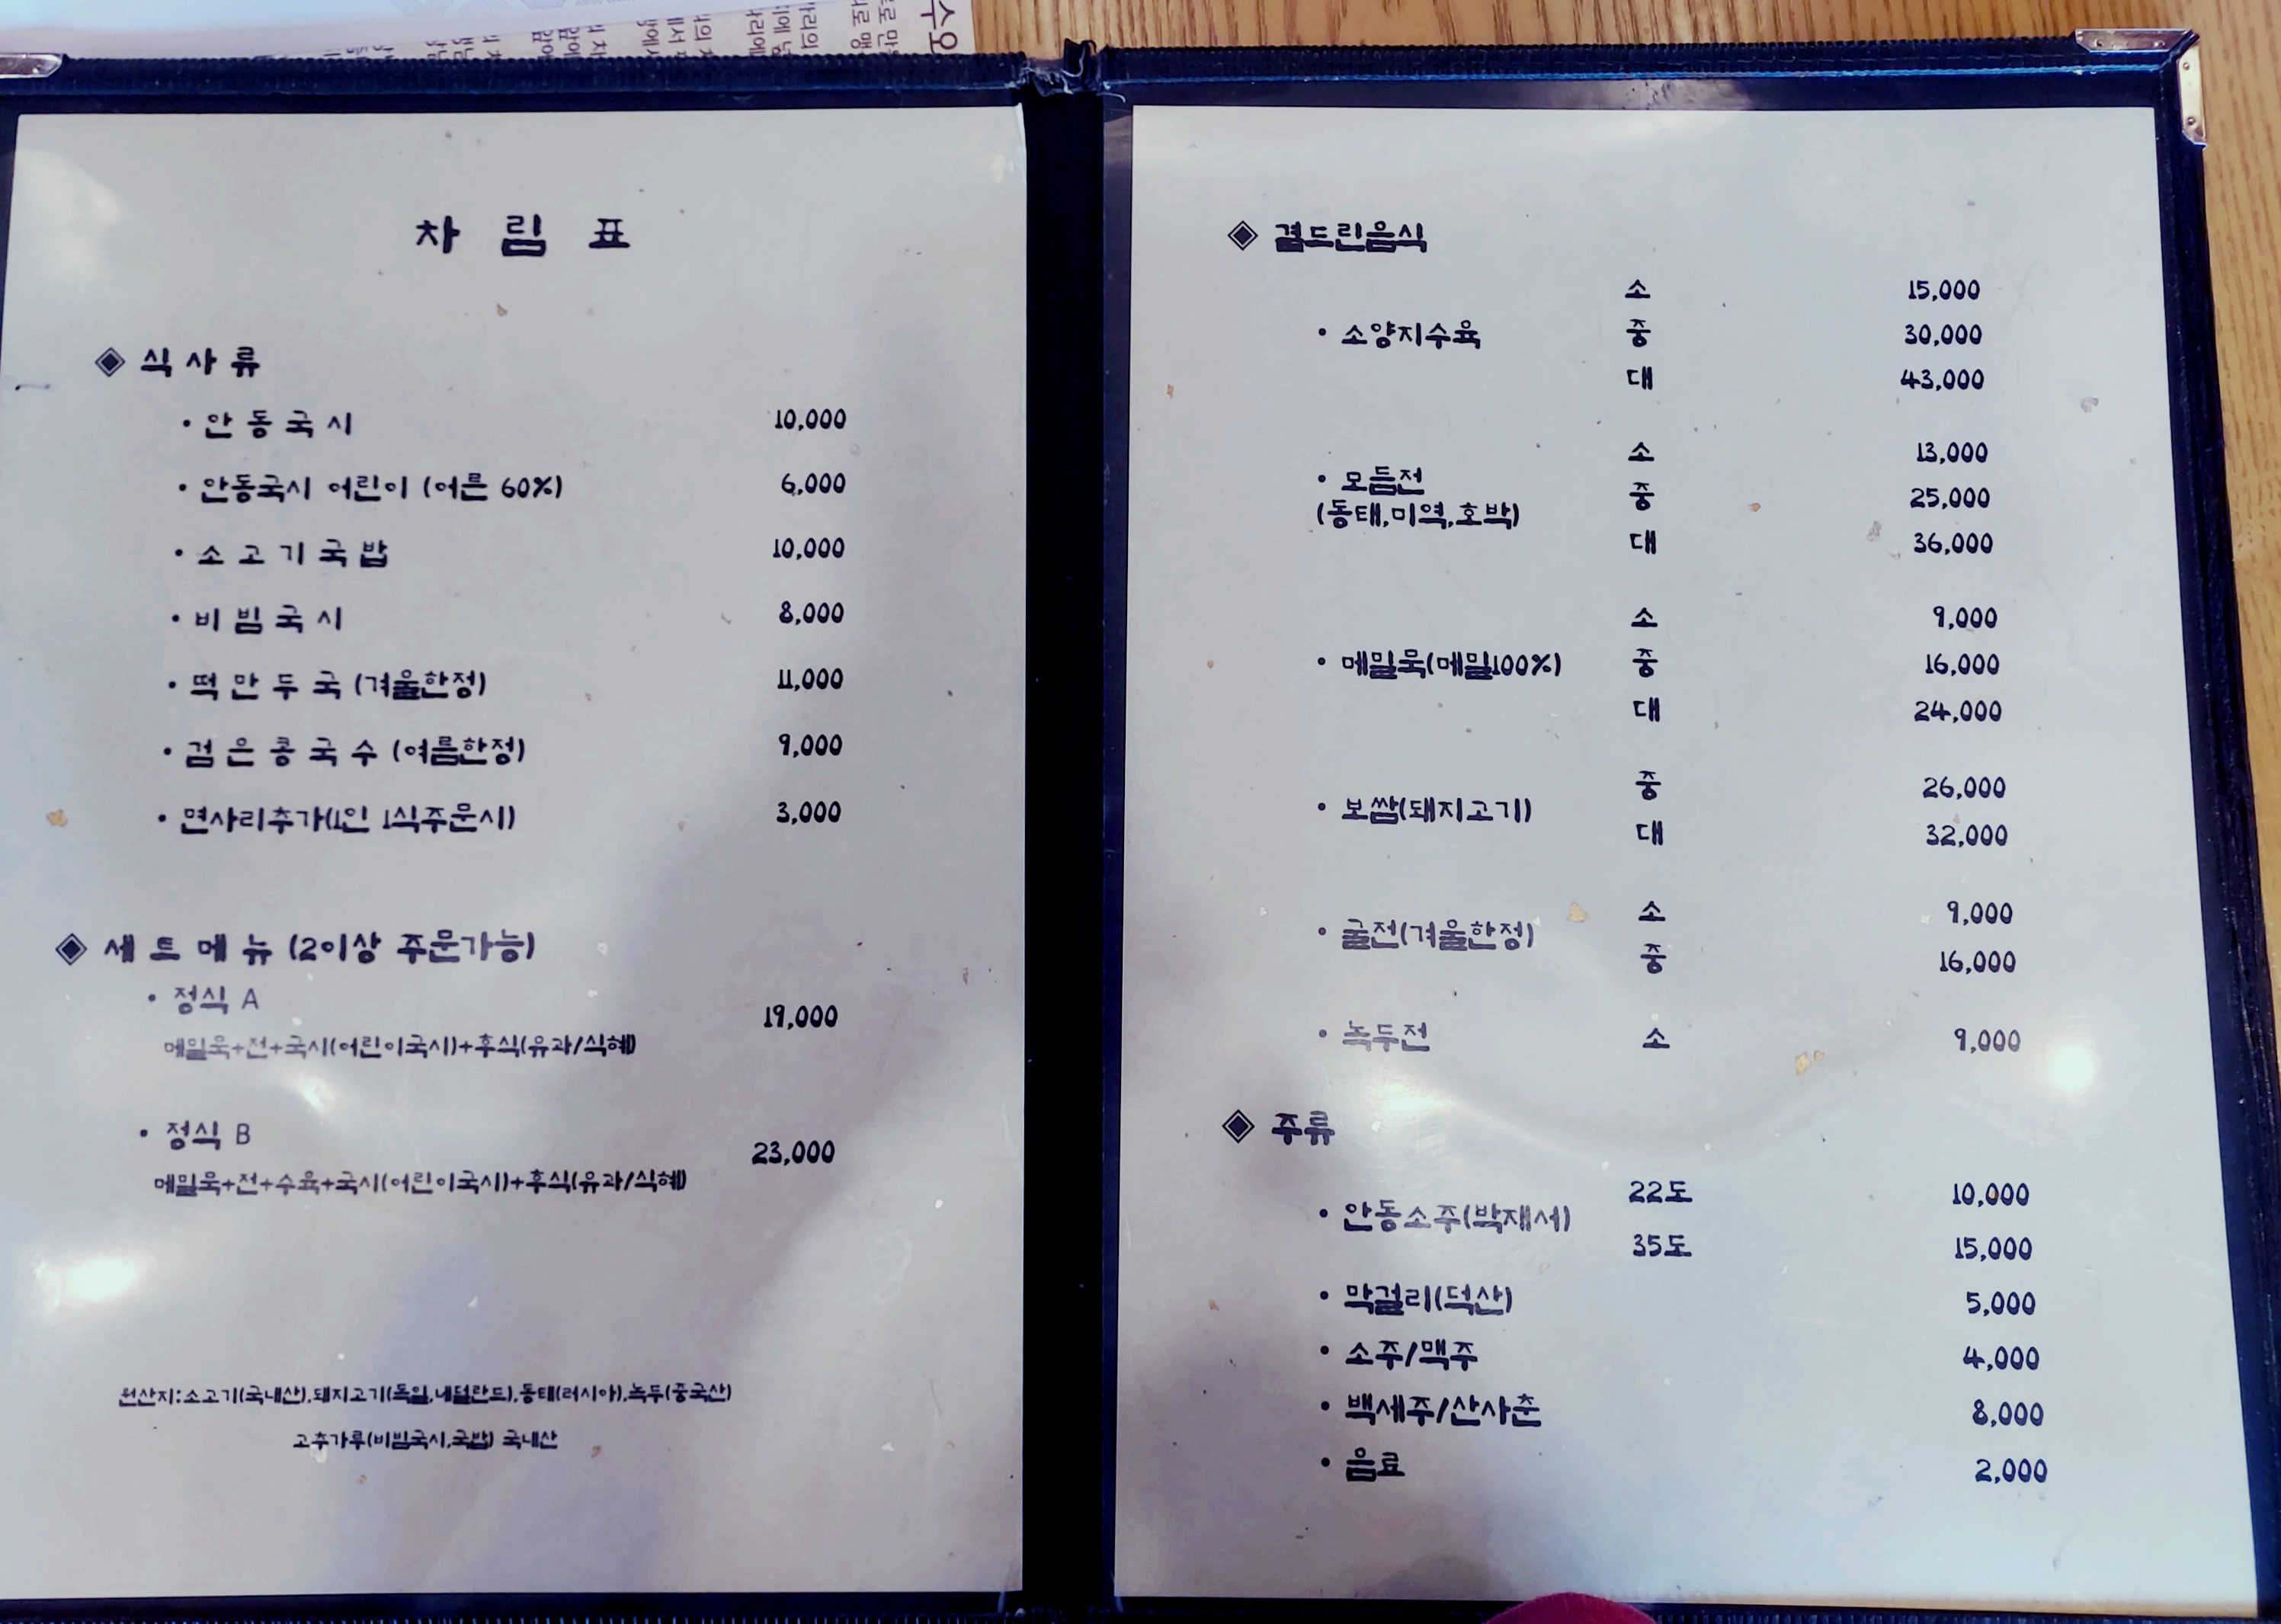 차 림 표
◈ 식 사 류
• 안 동 국 시 10,000
• 안동국시 어린이 (어른 60%) 6,000
• 소 고 기 국 밥 10,000
• 비 빔 국 시 8,000
• 떡 만 두 국 (겨울한정) 11,000
• 검 은 콩 국 수 (여름한정) 9,000
• 면사리추가(1인 1식주문시) 3,000
◈ 세 트 메 뉴 (2이상 주문가능)
• 정식 A 19,000
메밀묵+전+국시(어린이국시)+후식(유과/식혜)
• 정식 B 23,000
메밀묵+전+수육+국시(어린이국시)+후식(유과/식혜)
원산지:소고기(국내산),돼지고기(독일,네덜란드),동태(러시아),녹두(중국산)
고추가루(비빔국시,국밥) 국내산
◈ 곁드린음식
소 15,000
• 소양지수육 중 30,000
대 43,000
소 13,000
• 모듬전 중 25,000
(동태,미역,호박)
대 36,000
소 9,000
• 메밀묵(메밀100%) 중 16,000
대 24,000
중 26,000
• 보쌈(돼지고기)
대 32,000
소 9,000
• 굴전(겨울한정)
중 16,000
• 녹두전 소 9,000
◈ 주류
22도 10,000
• 안동소주(박재서)
35도 15,000
• 막걸리(덕산) 5,000
• 소주/맥주 4,000
• 백세주/산사춘 8,000
• 음료 2,000